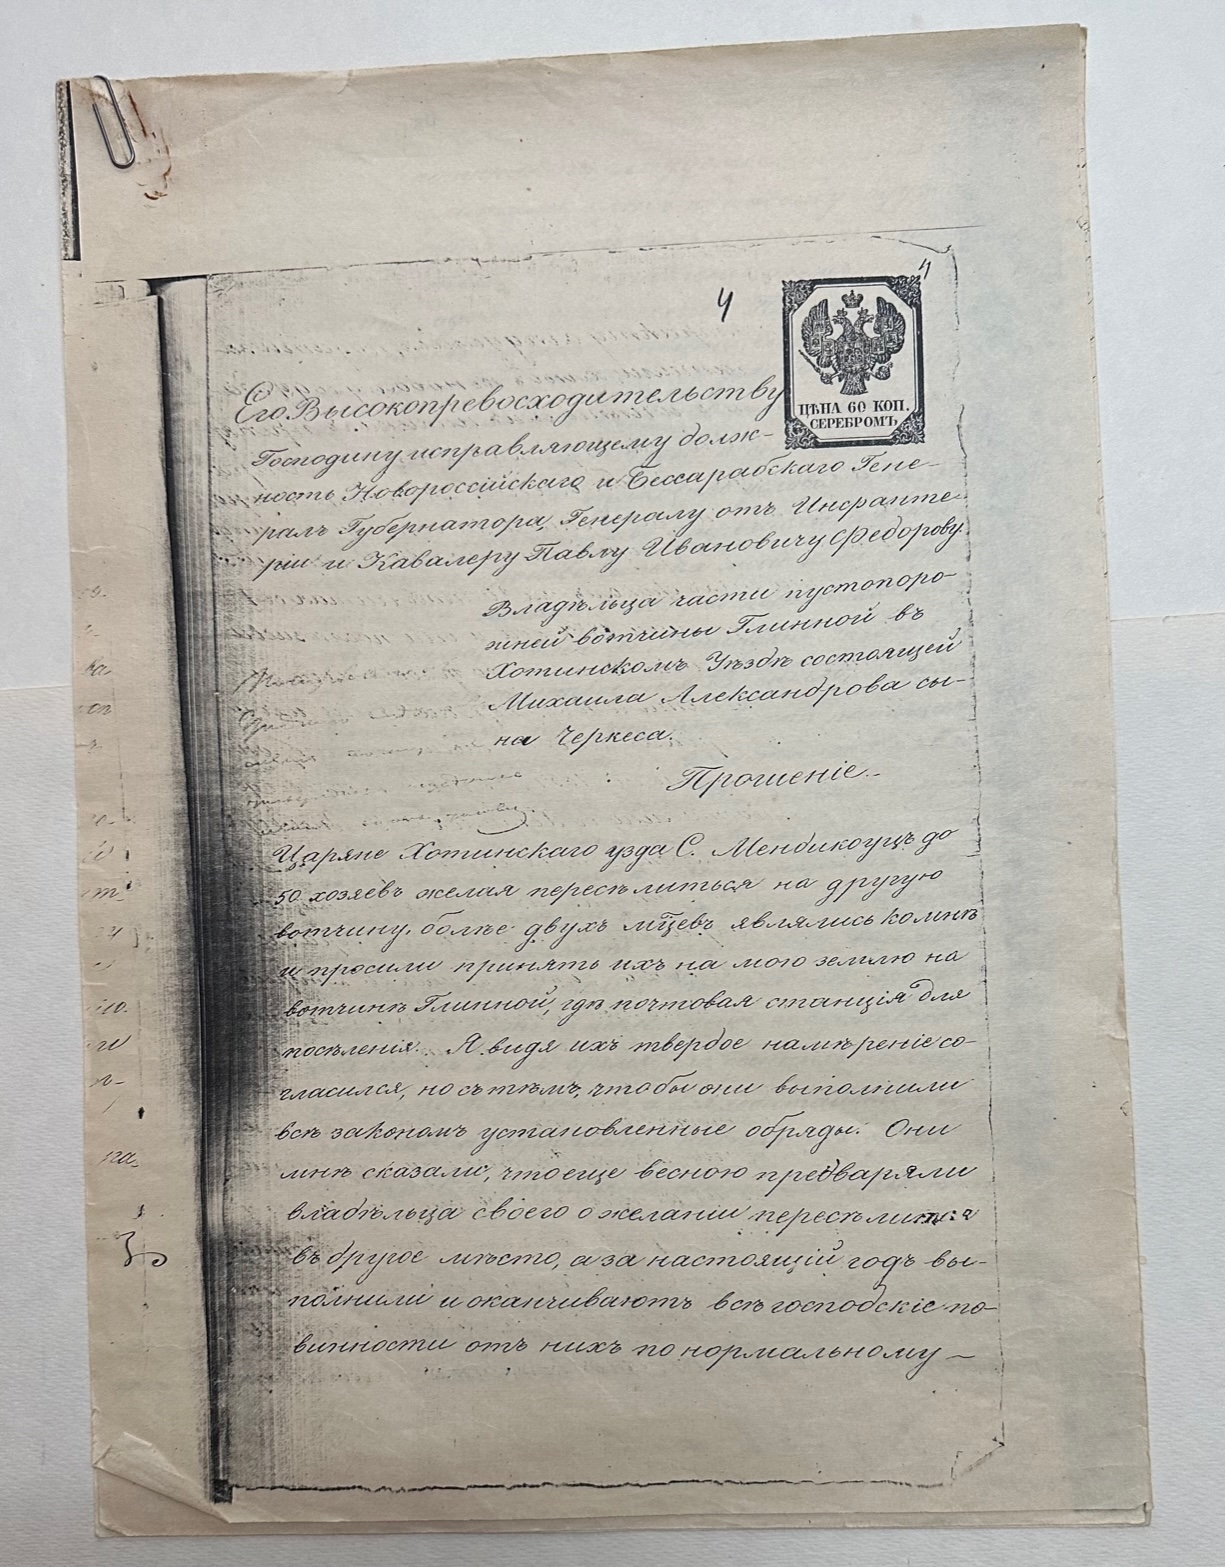 4
4
ЦѢНА 60 КОП.
СЕРЕБРОМЪ
Его Высокопревосходительству
Господину исправляющему долж-
ность Новороссійскаго и Бессарабскаго Гене-
ралъ Губернатора, Генералу отъ Инфанте-
ріи и Кавалеру Павлу Ивановичу Федорову
Владѣльца части пустопоро-
жней вотчины Глинной въ
Хотинскомъ Уѣздѣ состоящей
Михаила Александрова сы-
на Черкеса.
Прошеніе.
Царяне Хотинскаго узда С. Мендикоуцъ до
50 хозяевъ желая переселиться на другую
вотчину, болѣе двухъ мцевъ являлись ко мнѣ
и просили принять ихъ на мою землю на
вотчинѣ Глинной, гдѣ почтовая станція для
поселенія. Я видя ихъ твердое намѣреніе со-
гласился, но съ тѣмъ, чтобы они выполнили
всѣ закономъ установленные обряды. Они
мнѣ сказали, что еще весною предваряли
владѣльца своего о желаніи переселиться
въ другое мѣсто, а за настоящій годъ вы-
полнили и оканчиваютъ всѣ господскіе по-
винности отъ нихъ по нормальному —